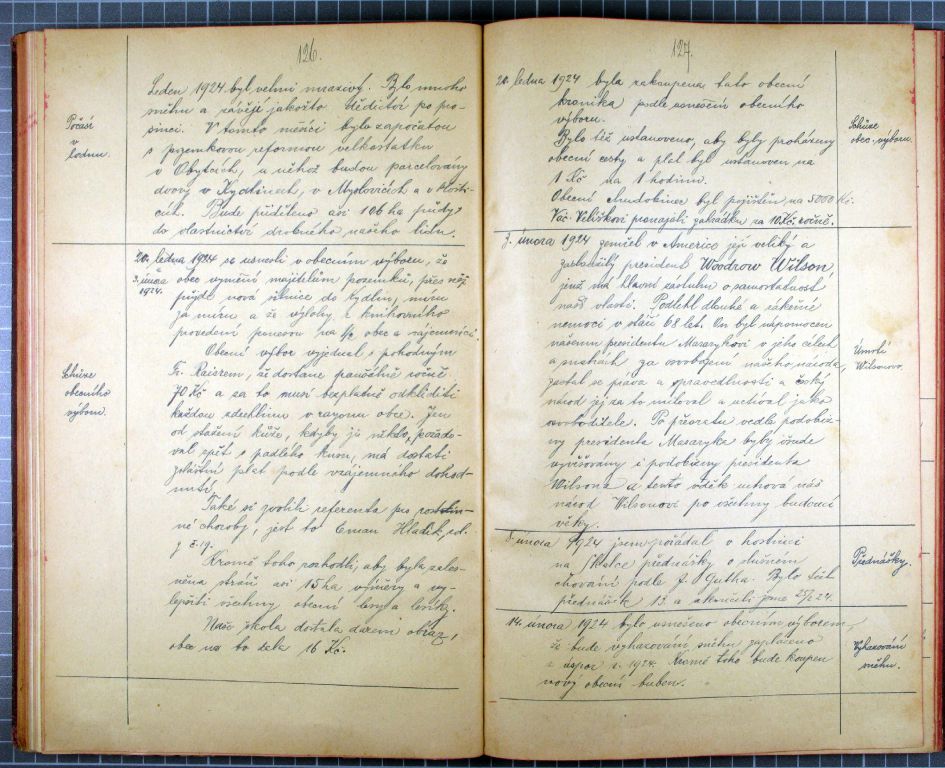 126.
Počasí
v
lednu.
Leden 1924 byl velmi mrazivý. Bylo mnoho
sněhu a závějí jakožto dědictví po pro-
sinci. V tomto měsíci bylo započato
s pozemkovou reformou velkostatku
v Obytcích, u něhož budou parcelovány
dvory v Kydlinech, v Myslovicích a v
Bude přiděleno asi 106 ha půdy
do vlastnictví drobného našeho lidu.
20. ledna 1924 se usnesli v obecním výboru, že
3. února
1924.
obec vymění majitelům pozemků, přes něž
půjde nová silnice do Kydlin, míru
za míru a že výlohy z knihovního
povedení ponesou na 1/2 obec a zájemníci.
Schůze
obecního
výboru.
Obecní výbor vyjednal s pohodným
Fr. Raisrem, že dostane paušálně ročně
70 Kč a za to musí bezplatně odkliditi
každou zdechlinu v rayonu obce. Jen
od stažení kůže, kdyby ji někdo požado-
val zpět s padlého kusu, má dostati
zvláštní plat podle vzájemného dohod-
nutí.
Také si zvolili referenta pro rostlin-
né choroby, jest to Eman Hladík, rol.
z č. 19.
Kromě toho rozhodli, aby byla zales-
něna stráň asi 15 ha výměry a vy-
lepšiti všechny obecní lesy a lesíky.
Naše škola dostala darem obraz,
obec na to dala 16 Kč.
127.
20. ledna 1924 byla zakoupena tato obecní
kronika podle usnešení obecního
výboru.
Schůze
obec. výboru.
Bylo též ustanoveno, aby byly proházeny
obecní cesty a plat byl ustanoven na
1 Kč na 1 hodinu.
Obecní chudobinec byl pojištěn na 5000 Kč.
Vác. Velíškovi pronajali zahrádku za 10 Kč. ročně.
3. února 1924 zemřel v Americe její veliký a
zasloužilý president Woodrow Wilson,
jenž má hlavní zásluhu o samostatnost
naší vlasti. Podlehl dlouhé a zákeřné
nemoci v stáří 68 let. On byl nápomocen
našemu presidentu Masarykovi v jeho cílech
a snahách za osvobození našeho národa,
Úmrtí
Wilsonovo.
zastal se práva a spravedlnosti a český
národ jej za to miloval a uctíval jako
osvoboditele. Po převratu vedle podobiz-
ny presidenta Masaryka byly všude
vyvěšovány i podobizny presidenta
Wilsona a tento vděk uchová náš
národ Wilsonovi po všechny budoucí
věky.
8. února 1924 jsem pořádal v hostinci
na Skalce přednášky o slušném
chování podle J. Gutha. Bylo těch
přednášek 13. a skončili jsme 25/2 24.
Přednášky.
14. února 1924 bylo usneseno obecním výborem,
že bude vyhazování sněhu zaplaceno
z úspor r. 1924. Kromě toho bude koupen
nový obecní buben.
Vyhazování
sněhu.